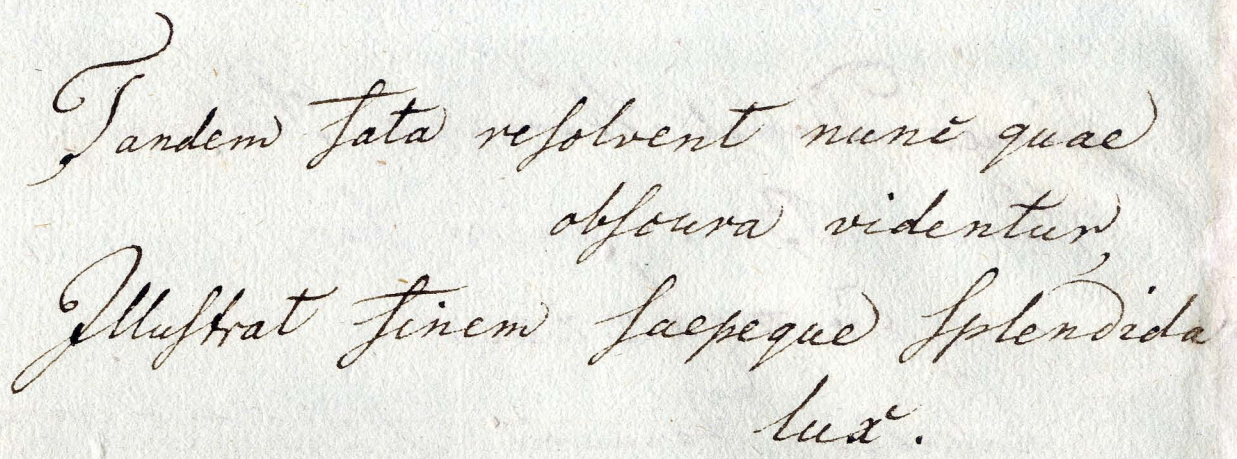 Tandem fata reſolvent nunc quae
obſcura videntur,
Illuſtrat finem ſaepeque ſplendida
lux.